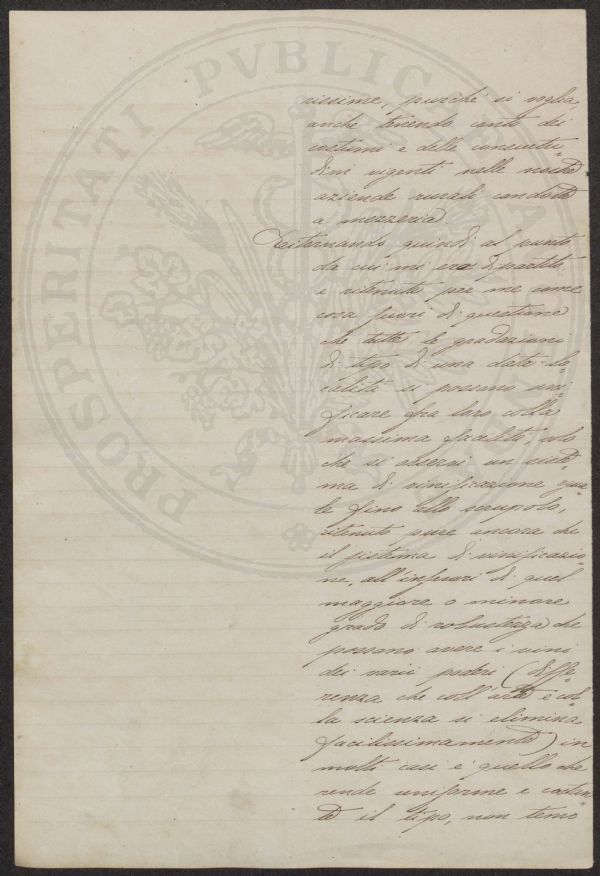 PROSPERITATI PVBLICAE
rissime, purché si voglia,
anche tenendo conto dei
costumi e delle consuetu-
dini vigenti nelle nostre
aziende rurali condotte
a mezzeria.
Ritornando quindi al punto
da cui mi era dipartito
e ritenuto per me come
cosa fuori di questione
che tutte le gradazioni
di tipo di una data lo-
calità si possono uni-
ficare fra loro colla
massima facilità, solo
che si osservi un siste-
ma di vinificazione egua-
le fino allo scrupolo,
ritenuto pure ancora che
il sistema di vinificazio-
ne, all'infuori di quel
maggiore o minore
grado di robustezza che
possono avere i vini
dei varii poderi (diffe-
renza che coll'arte e col-
la scienza si elimina
facilissimamente) in
molti casi è quello che
rende uniforme e costan-
te il tipo, non temo